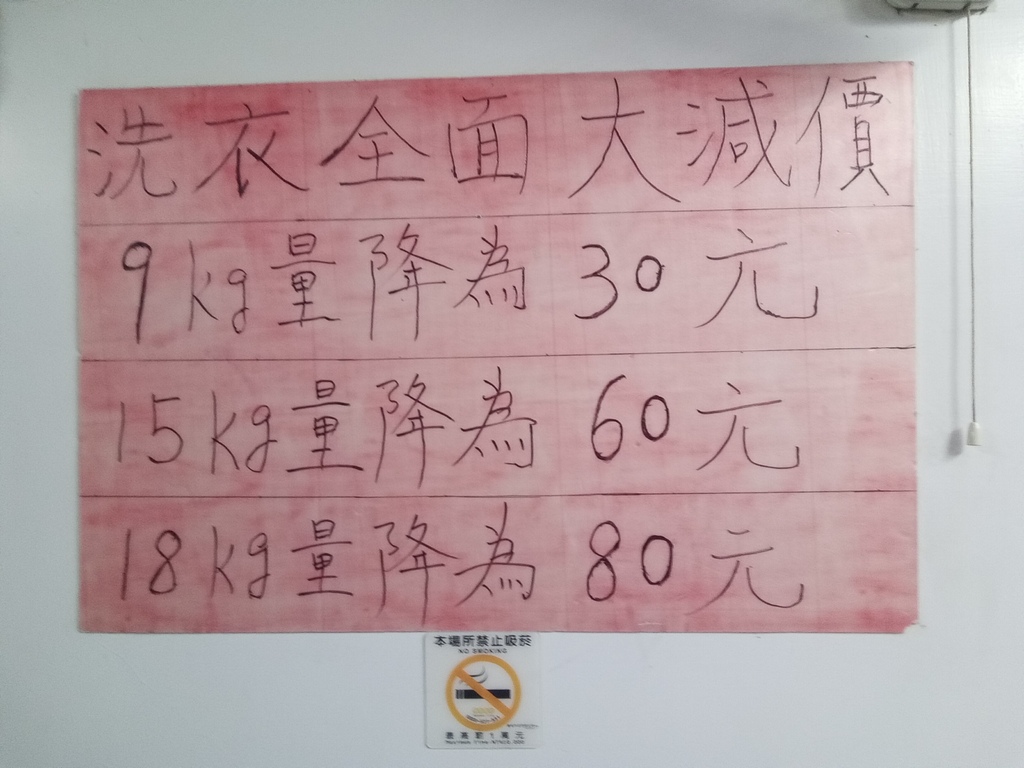 洗衣全面大減價
9kg量降為30元
15kg量降為60元
18kg量降為80元
本場所禁止吸菸
NO SMOKING
最高罰1萬元